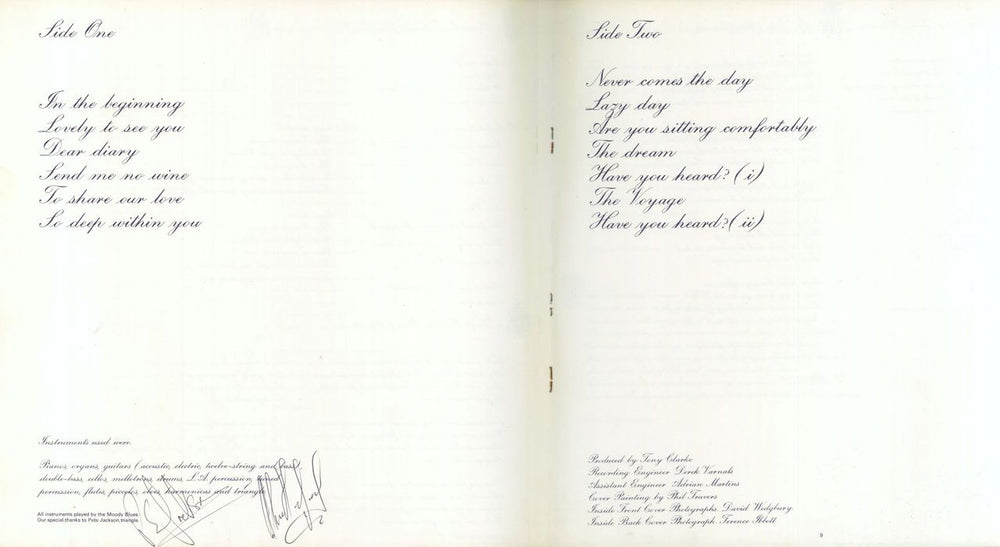 Side One
In the beginning
Lovely to see you
Dear diary
Send me no wine
To share our love
So deep within you
Instruments used were.
Pianos, organs, guitars (acoustic, electric, twelve-string and bass)
double-bass, cellos, mellotrons, drums, L.A. percussion, tuned
percussion, flutes, piccolos, oboe, harmonicas and triangle
All instruments played by the Moody Blues
Our special thanks to Pete Jackson, triangle.
Side Two
Never comes the day
Lazy day
Are you sitting comfortably
The dream
Have you heard? (i)
The Voyage
Have you heard? (ii)
Produced by Tony Clarke
Recording Engineer Derek Varnals
Assistant Engineer Adrian Martins
Cover Painting by Phil Travers
Inside Front Cover Photographs. David Wedgbury.
Inside Back Cover Photograph. Terence Ibbott
9